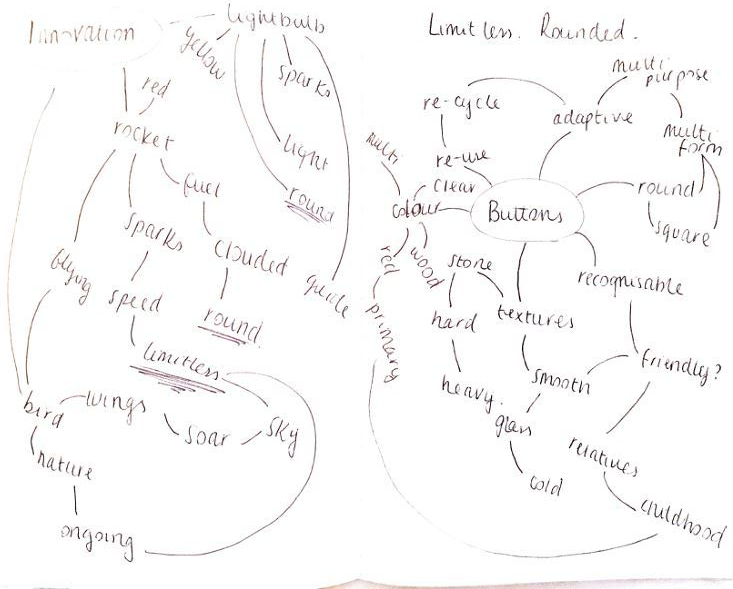 Innovation
lightbulb
yellow
sparks
light
round
guide
red
rocket
fuel
clouded
round
sparks
speed
limitless
flying
bird
wings
soar
sky
nature
ongoing
Limitless. Rounded.
Buttons
adaptive
multi
purpose
multi
form
re-cycle
re-use
round
square
colour
clear
multi
red
wood
primary
textures
stone
hard
heavy.
smooth
glass
cold
recognisable
friendly?
relatives
childhood